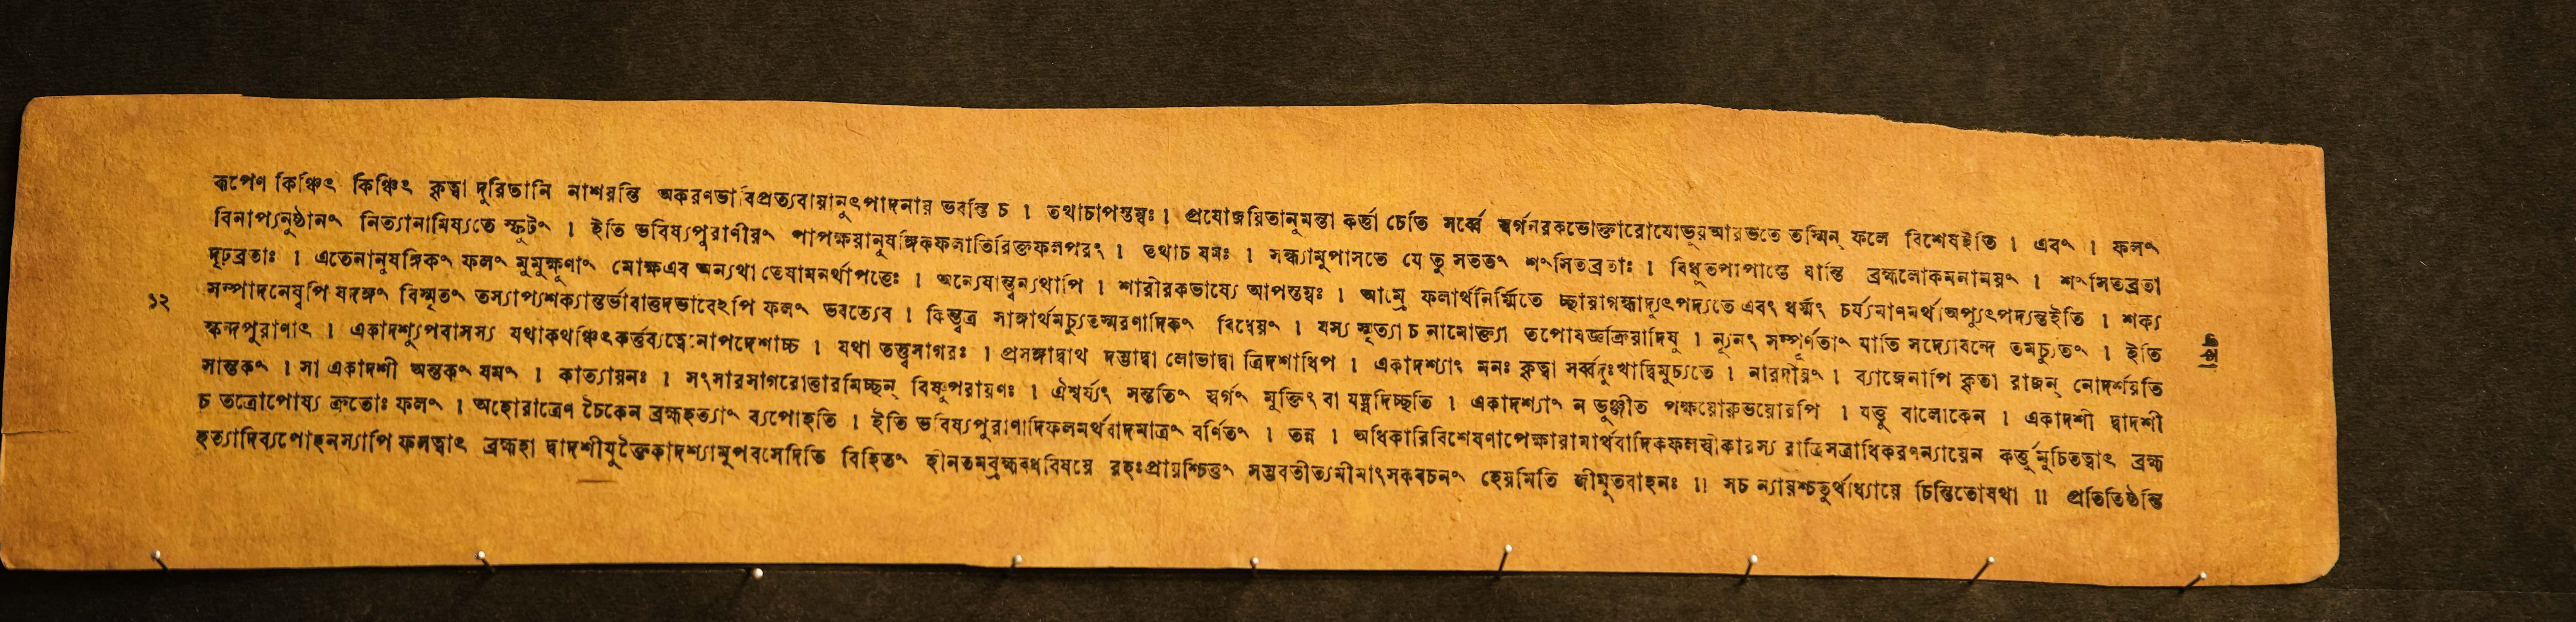 রূপেণ কিঞ্চিৎ কিঞ্চিৎ কৃত্বা দুরিতানি নাশয়ন্তি অকরণভাবিপ্রত্যবায়ানুৎপাদনায় ভবন্তি চ । তথাচাপস্তম্বঃ । প্রযোজয়িতানুমন্তা কর্ত্তা চেতি সর্ব্বে স্বর্গনরকভোক্তারোযোভূয়আরভতে তস্মিন্ ফলে বিশেষইতি । এবং । ফলং
বিনাপ্যনুষ্ঠানং নিত্যানামিষ্যতে স্ফুটং । ইতি ভবিষ্যপুরাণীয়ং পাপক্ষয়ানুষঙ্গিকফলাতিরিক্তফলপরং । তথাচ যমঃ । সন্ধ্যামুপাসতে যে তু সততং শংসিতব্রতাঃ । বিধুতপাপাস্তে যান্তি ব্রহ্মলোকমনাময়ং । শংসিতব্রতা
দৃঢ়ব্রতাঃ । এতেনানুষঙ্গিকং ফলং মুমুক্ষূণাং মোক্ষএব অন্যথা তেষামনর্থাপত্তেঃ । অন্যেষান্ত্বন্যথাপি । শারীরকভাষ্যে আপস্তম্বঃ । আম্রে ফলার্থনির্ম্মিতে চ্ছায়াগন্ধাদ্যুৎপদ্যতে এবং ধর্ম্মং চর্য্যমাণমর্থাঅপ্যুৎপদ্যন্তইতি । শক্য
১২ সম্পাদনেষ্বপি যদঙ্গং বিস্মৃতং তস্যাপ্যশক্যান্তর্ভাবাত্তদভাবেঽপি ফলং ভবত্যেব । কিন্ত্বত্র সাঙ্গার্থমচ্যুতস্মরণাদিকং বিধেয়ং । যস্য স্মৃত্যা চ নামোক্ত্যা তপোযজ্ঞক্রিয়াদিষু । ন্যূনং সম্পূর্ণতাং যাতি সদ্যোবন্দে তমচ্যুতং । ইতি
স্কন্দপুরাণাৎ । একাদশ্যুপবাসস্য যথাকথঞ্চিৎকর্ত্তব্যত্বেনোপদেশাচ্চ । যথা তত্ত্বসাগরঃ । প্রসঙ্গাদ্বাথ দম্ভাদ্বা লোভাদ্বা ত্রিদশাধিপ । একাদশ্যাং মনঃ কৃত্বা সর্ব্বদুঃখাদ্বিমুচ্যতে । নারদীয়ং । ব্যাজেনাপি কৃতা রাজন্ নোদর্শয়তি
সান্তকং । সা একাদশী অন্তকং যমং । কাত্যায়নঃ । সংসারসাগরোত্তারমিচ্ছন্ বিষ্ণুপরায়ণঃ । ঐশ্বর্য্যং সন্ততিং স্বর্গং মুক্তিং বা যদ্যদিচ্ছতি । একাদশ্যাং ন ভুঞ্জীত পক্ষয়োরুভয়োরপি । যত্তু বালোকেন । একাদশী দ্বাদশী
চ তত্রোপোষ্য ক্রতোঃ ফলং । অহোরাত্রেণ চৈকেন ব্রহ্মহত্যাং ব্যপোহতি । ইতি ভবিষ্যপুরাণাদিফলমর্থবাদমাত্রং বর্ণিতং । তন্ন । অধিকারিবিশেষণাপেক্ষায়ামার্থবাদিকফলস্বীকারস্য রাত্রিসত্রাধিকরণন্যায়েন কর্ত্তুমুচিতত্বাৎ ব্রহ্ম
হত্যাদিব্যপোহনস্যাপি ফলত্বাৎ ব্রহ্মহা দ্বাদশীযুক্তৈকাদশ্যামুপবসেদিতি বিহিতং হীনতমব্রহ্মবধবিষয়ে রহঃপ্রায়শ্চিত্তং সম্ভবতীত্যমীমাংসকবচনং হেয়মিতি জীমূতবাহনঃ ॥ সচ ন্যায়শ্চতুর্থাধ্যায়ে চিন্তিতোযথা ॥ প্রতিতিষ্ঠন্তি